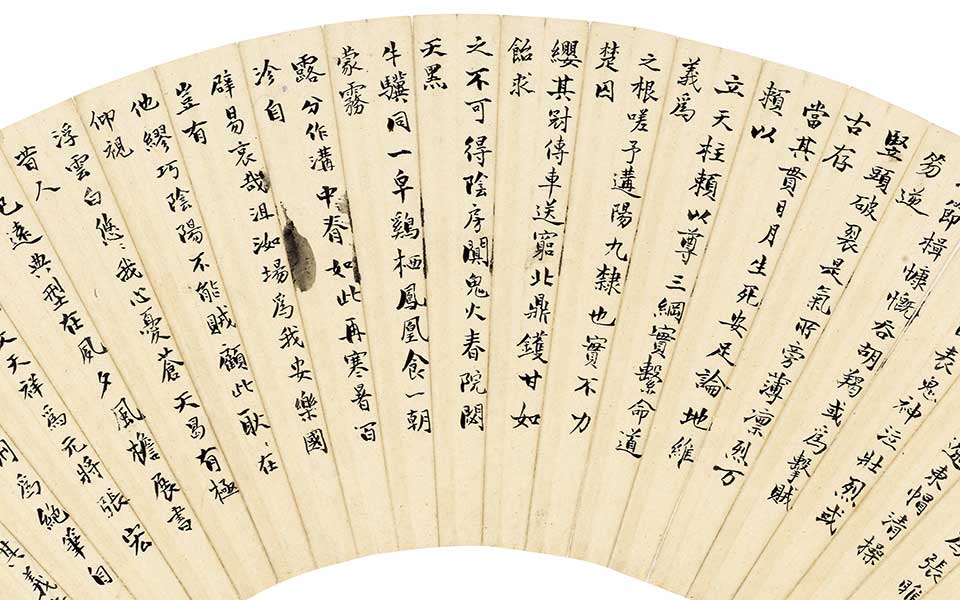 為張睢
遼東帽清操
表鬼神泣壯烈或
節楫慷慨吞胡羯或為擊賊
笏逆
豎頭破裂是氣所旁薄凛烈万
古存
當其貫日月生死安足論地維
賴以
立天柱賴以尊三綱實繫命道
義為
之根嗟予遘陽九隸也實不力
楚囚
纓其冠傳車送窮北鼎鑊甘如
飴求
之不可得陰房闃鬼火春院閟
天黑
牛驥同一皁鷄栖鳳凰食一朝
蒙霧
露分作溝中瘠如此再寒暑百
沴自
辟易哀哉沮洳場為我安樂國
豈有
他繆巧陰陽不能賊顧此耿〻在
仰視
浮雲白悠〻我心憂蒼天曷有極
昔人
已遠典型在夙夕風檐展書
文天祥為元將張宏
為絕筆自
其義